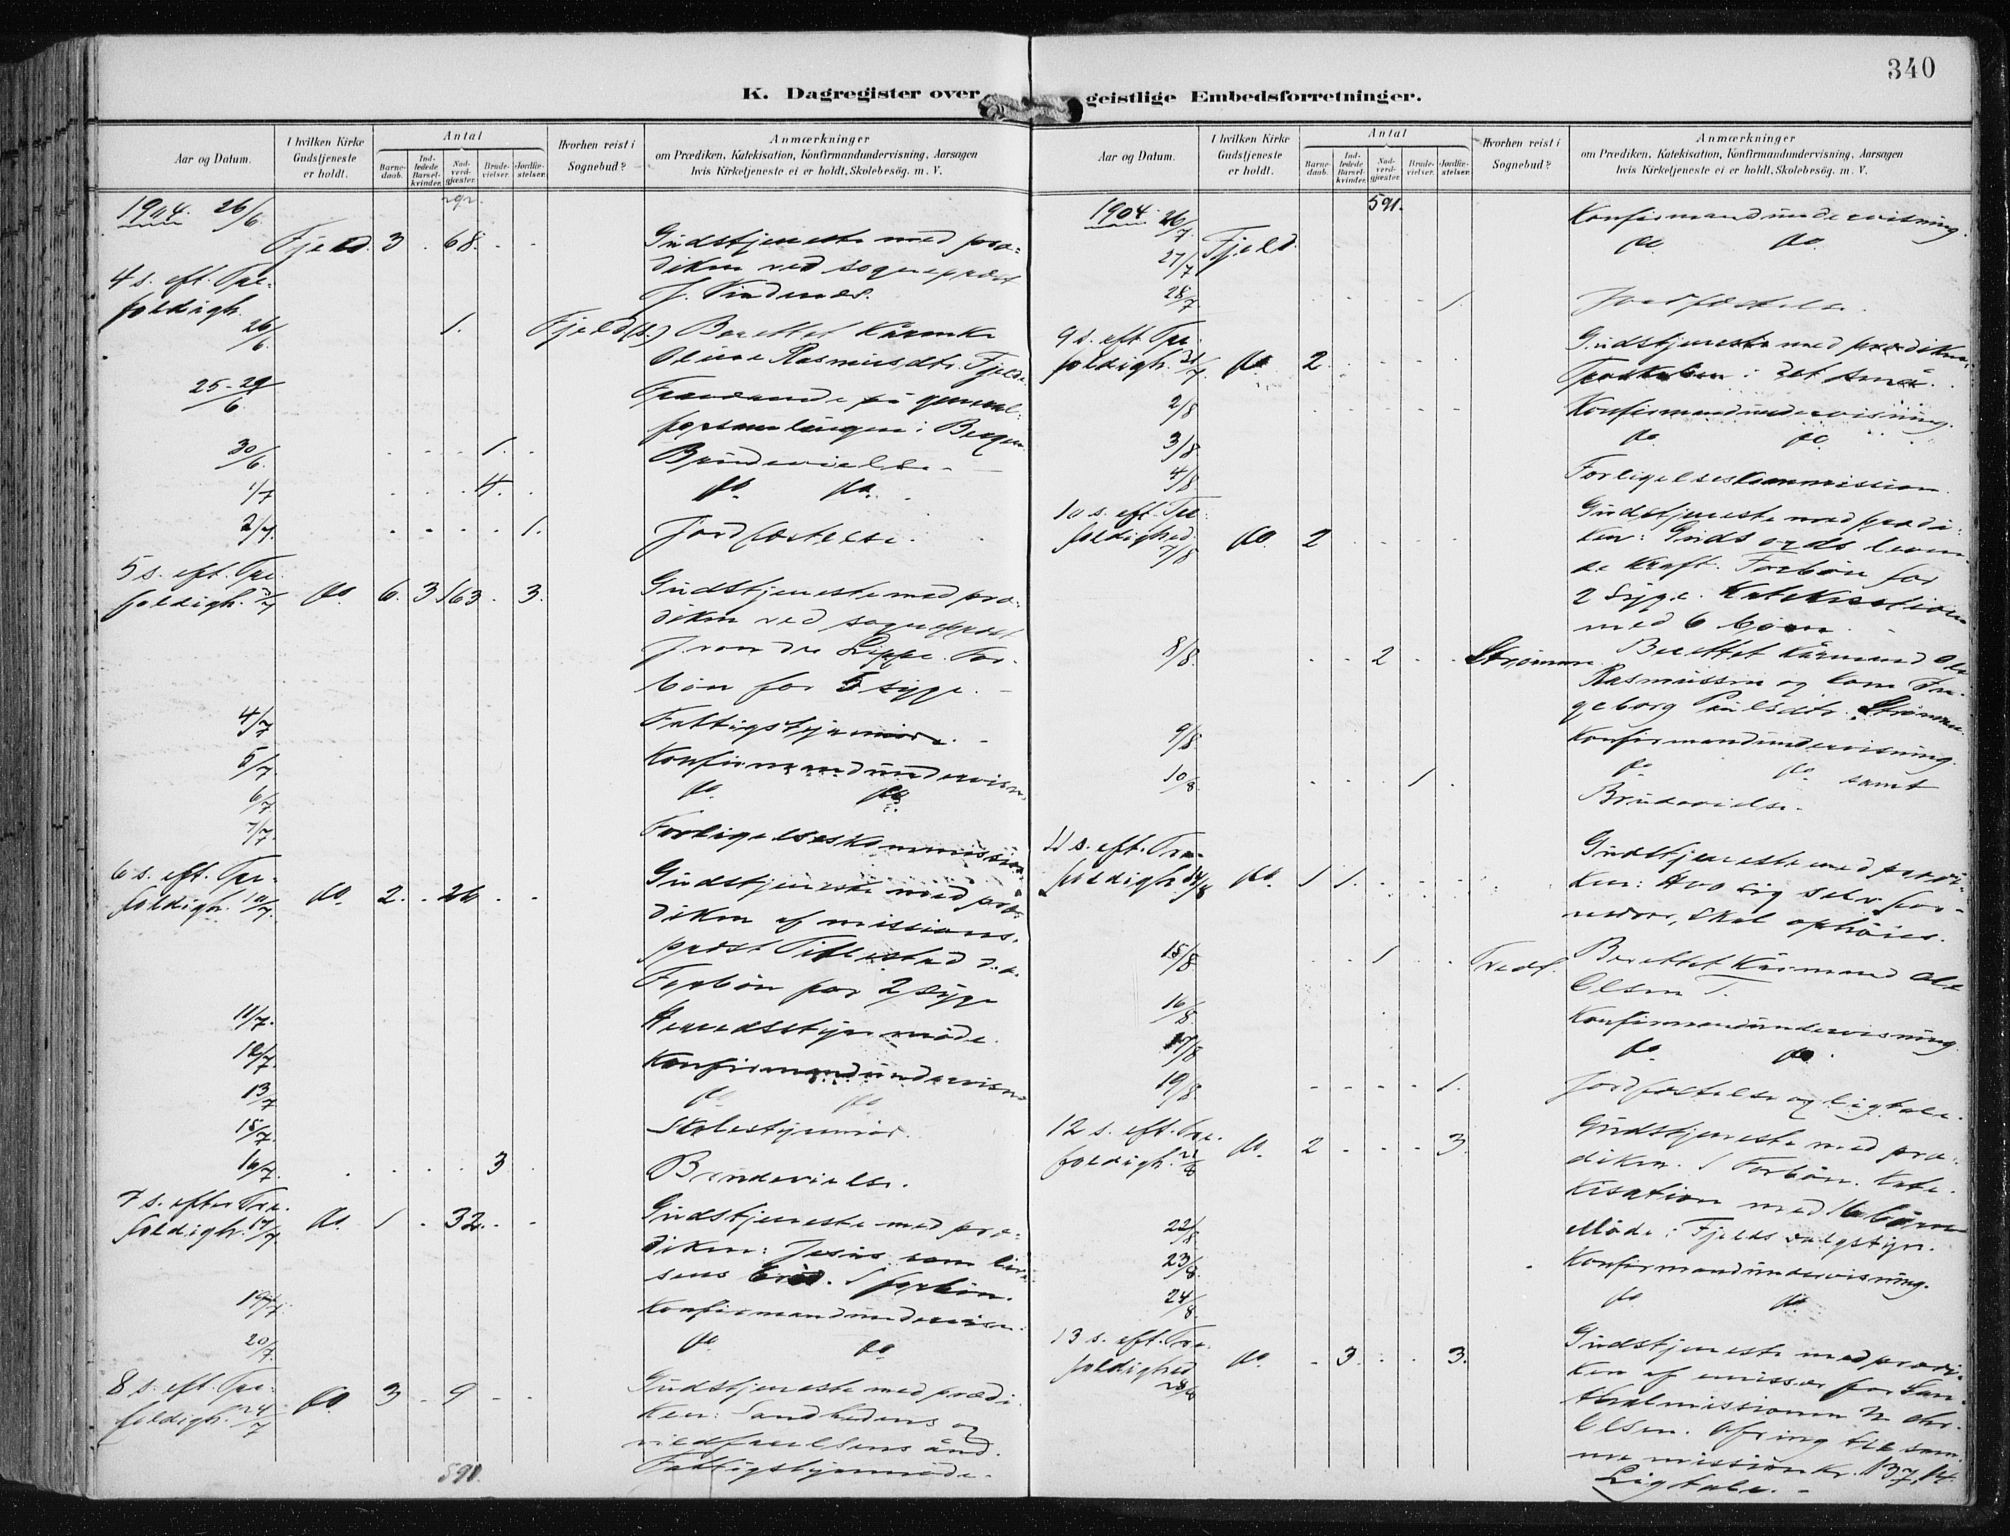 340
K. Dagregister over geistlige Embedsforretninger.
Aar og Datum.
I hvilken Kirke Gudstjeneste er holdt.
Antal
Barnedaab.
Indledede Barselkvinder.
Nadverdgjæster.
Brudevielser.
Jordfæstelser.
Hvorhen reist i Sognebud?
Anmærkninger
om Prædiken, Katekisation, Konfirmandundervisning, Aarsagen
hvis Kirketjeneste ei er holdt, Skolebesøg. m. V.
1904. 26/6
Fjeld. 3 . 68. . . Gudstjeneste med præ-
4 s. eft. Tre- diken ved sogneprest
foldigh. J. Vindenes.
26/6 1. Fjeld (s.) Berettet Kårenke
Oline Rasmusdtr. Fjeld.
25-29/6 Fraværende på general-
forsamlingen i Bergen
30/6. . . . 1. . Brudevielse.
1/7 . . . 4. . do. do.
2/7. . . . . 1. Jordfæstelse.
5 s. eft. Tre-
foldigh. 3/7 do. 6. 3 163 . 3. Gudstjeneste med præ-
diken ved sogneprest
J. von der Lippe. For-
bøn for 5 syge.
4/7 Fattigstyremøde.
5/7 Konfirmandundervisn.
6/7 do. do.
7/7. Forligelseskommission.
6 s. eft. Tre-
foldigh. 10/7. do. 2. . 26 . . Gudstjeneste med præ-
diken af missions-
prest Tillestad
Forbøn for 2 syge
11/7. Herredsstyremøde.
12/7. Konfirmandundervisn.
13/7 do do
15/7. Skolestyremøde.
16/7. . . . 3 . Brudevielse.
7 s. efter Tre-
foldigh. 17/7 do. 1 . 32. . . Gudstjeneste med præ-
diken: Jesus som liv-
sens brød. 1 forbøn.
19/7. Konfirmandundervisn.
20/7. do do.
8 s. eft. Tre-
foldigh. 24/7 do 3 . 9 . . Gudstjeneste med prædi-
ken: Sandhedens og
vildfarelsens ånd.
591. Fattigstyremøde.
Aar og Datum.
I hvilken Kirke Gudstjeneste er holdt.
Antal
Barnedaab.
Indledede Barselkvinder.
Nadverdgjæster.
Brudevielser.
Jordfæstelser.
Hvorhen reist i Sognebud?
Anmærkninger
om Prædiken, Katekisation, Konfirmandundervisning, Aarsagen
hvis Kirketjeneste ei er holdt, Skolebesøg. m. V.
591.
1904. 26/7. Konfirmandundervisning.
27/7 Fjeld. do. do.
28/7. . . . . 1. Jordfæstelse.
9 s. eft. Tre-
foldigh. 31/7. do 2. . . . . Gudstjeneste med prædiken,
Troskaben i det små.
2/8 Konfirmandundervisning.
3/8 do. do.
4/8 Forligelseskommission.
10 s. eft. Tre-
foldighed 7/8 do. 2 . . . . Gudstjeneste med prædi-
ken: Guds ords leven-
de kraft. Forbøn for
2 syge. Katekisation
med 6 børn.
8/8. . . 2 . . Strømme. Berettet Kårmand Ole
Rasmussen og kone In-
geborg Paulsdtr. Strømme.
9/8 Konfirmandundervisning.
10/8 . . . 1 . do do samt
Brudevielse.
11 s. eft. Tre-
foldigh. 14/8 do. 1 1. . . . Gudstjeneste med prædi-
ken: Hvo sig selv for-
nedrer, skal ophøies.
15/8 . . 1 . . Tredl. Berettet Kårmand Ole
Olsen T.
16/8 Konfirmandundervisning.
17/8 do do.
19/8 . . . . 1. Jordfæstelse og ligtale.
12 s. eft. Tre-
foldigh. 21/8 do. 2 . . . 3. Gudstjeneste med præ-
diken. 1 Forbøn. Kate-
kisation med 16 børn
22/8 Møde i Fjelds valgstyr.
23/8. Konfirmandundervisning.
24/8. do do.
13 s. eft. Tre-
foldighed 28/8 do. . 3. . . 3. Gudstjeneste med prædi-
ken af emissær for San-
thalmissionen N. Chr.
Olsen. Ofring til sam-
me mission kr. 137,14
Ligtale.